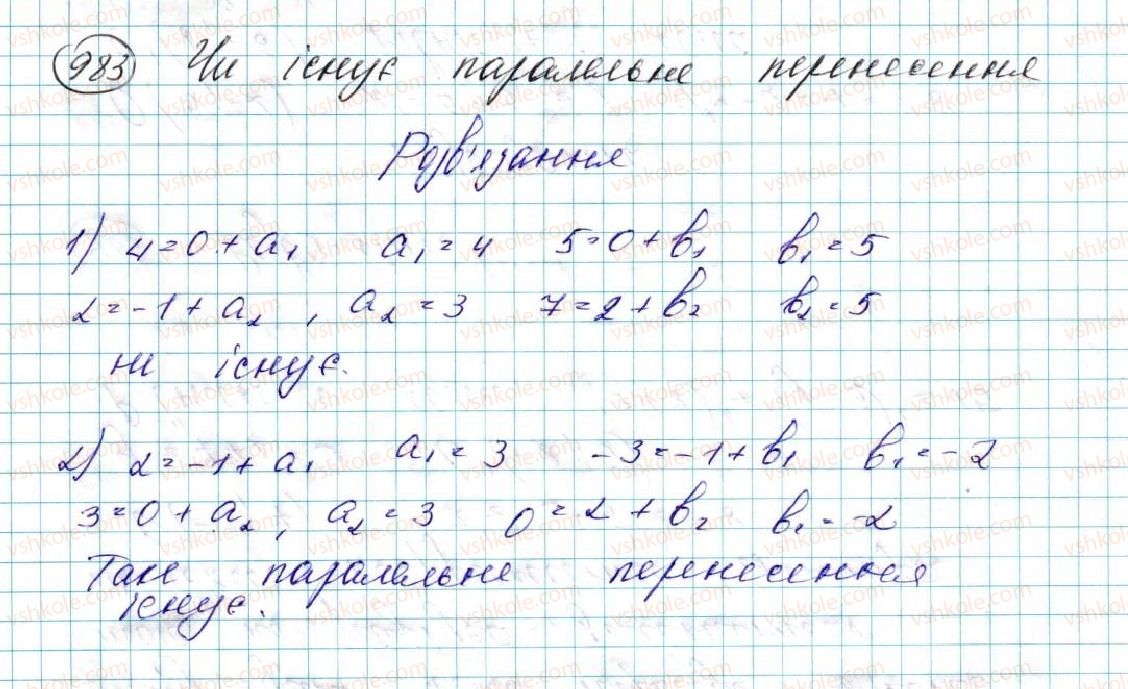 983 Чи існує паралельне перенесення
Розв'язання
1) 4=0+a₁ a₁=4 5=0+b₁ b₁=5
2=-1+a₂, a₂=3 7=2+b₂ b₂=5
не існує.
2) 2=-1+a₁ a₁=3 -3=-1+b₁ b₁=-2
3=0+a₂, a₂=3 0=2+b₂ b₂=-2
Таке паралельне перенесення
існує.